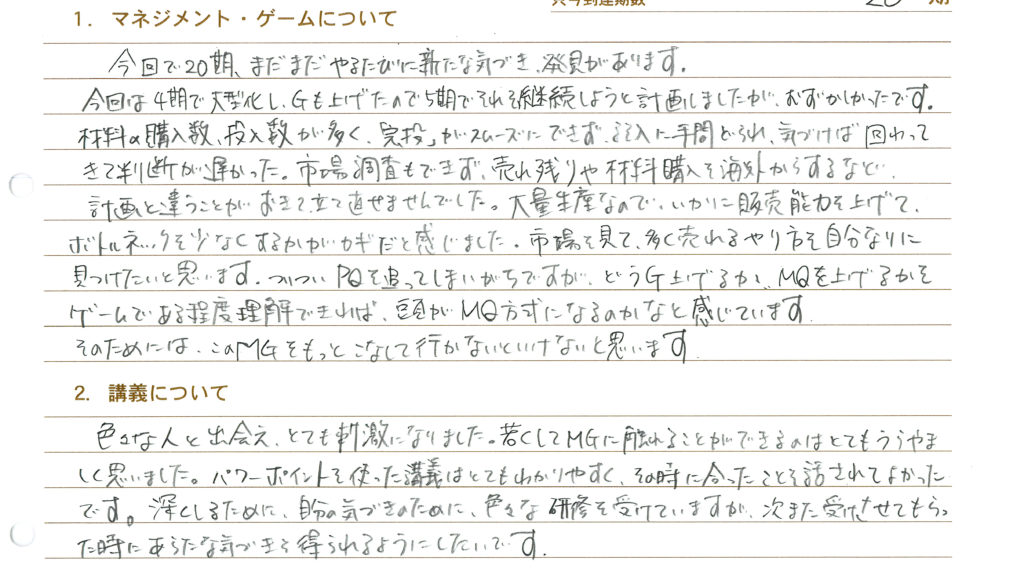 只今到達期数 20 期
1. マネジメント・ゲームについて
今回で20期、まだまだやるたびに新たな気づき、発見があります。
今回は4期で大型化し、Gも上げたので5期でそれを継続しようと計画しましたが、むずかしかったです。
材料の購入数、投入数が多く、完投、がスムーズにできず、記入に手間どられ、気づけば回わって
きて判断が遅かった。市場調査もできず、売れ残りや材料購入を海外からするなど、
計画と違うことがおきて立て直せませんでした。大量生産なので、いかに販売能力を上げて、
ボトルネックを少なくするかがカギだと感じました。市場を見て、多く売れるやり方を自分なりに
見つけたいと思います。ついついPQを追ってしまいがちですが、どうG上げるか、MQを上げるかを
ゲームである程度理解できれば、頭がMQ方式になるのかなと感じています
そのためには、このMGをもっとこなして行かないといけないと思います
2. 講義について
色々な人と出会え、とても刺激になりました。若くしてMGに触れることができるのはとてもうらやま
しく思いました。パワーポイントを使った講義はとてもわかりやすく、その時に合ったことを話されてよかった
です。深くしるために、自分の気づきのために、色々な研修を受けていますが、次また受けさせてもらっ
た時にあらたな気づきを得られるようにしたいです.